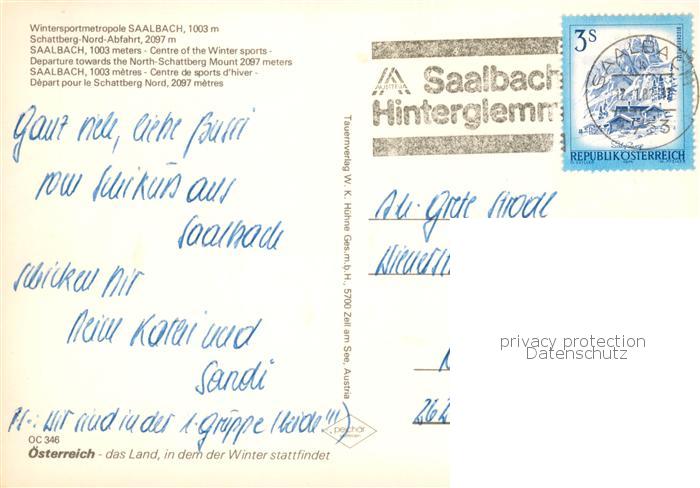 Wintersportmetropole SAALBACH, 1003 m
Schattberg-Nord-Abfahrt, 2097 m
SAALBACH, 1003 meters - Centre of the Winter sports -
Departure towards the North-Schattberg Mount 2097 meters
SAALBACH, 1003 mètres - Centre de sports d'hiver -
Départ pour le Schattberg Nord, 2097 mètres
Ganz viele, liebe Bussi
vom Schikurs aus
Saalbach
schicken Dir
Deine Kathi und
Sandi
: Wir sind in der 1. Gruppe (beide!!!)
OC 346
pelchar
Österreich - das Land, in dem der Winter stattfindet
Tauernverlag W. K. Hühne Ges.m.b.H., 5700 Zell am See, Austria
AUSTRIA
Saalbach
Hinterglemm
3S
SAALBACH
REPUBLIK ÖSTERREICH
An Grete Strodl
Wienerst
262
privacy protection
Datenschutz